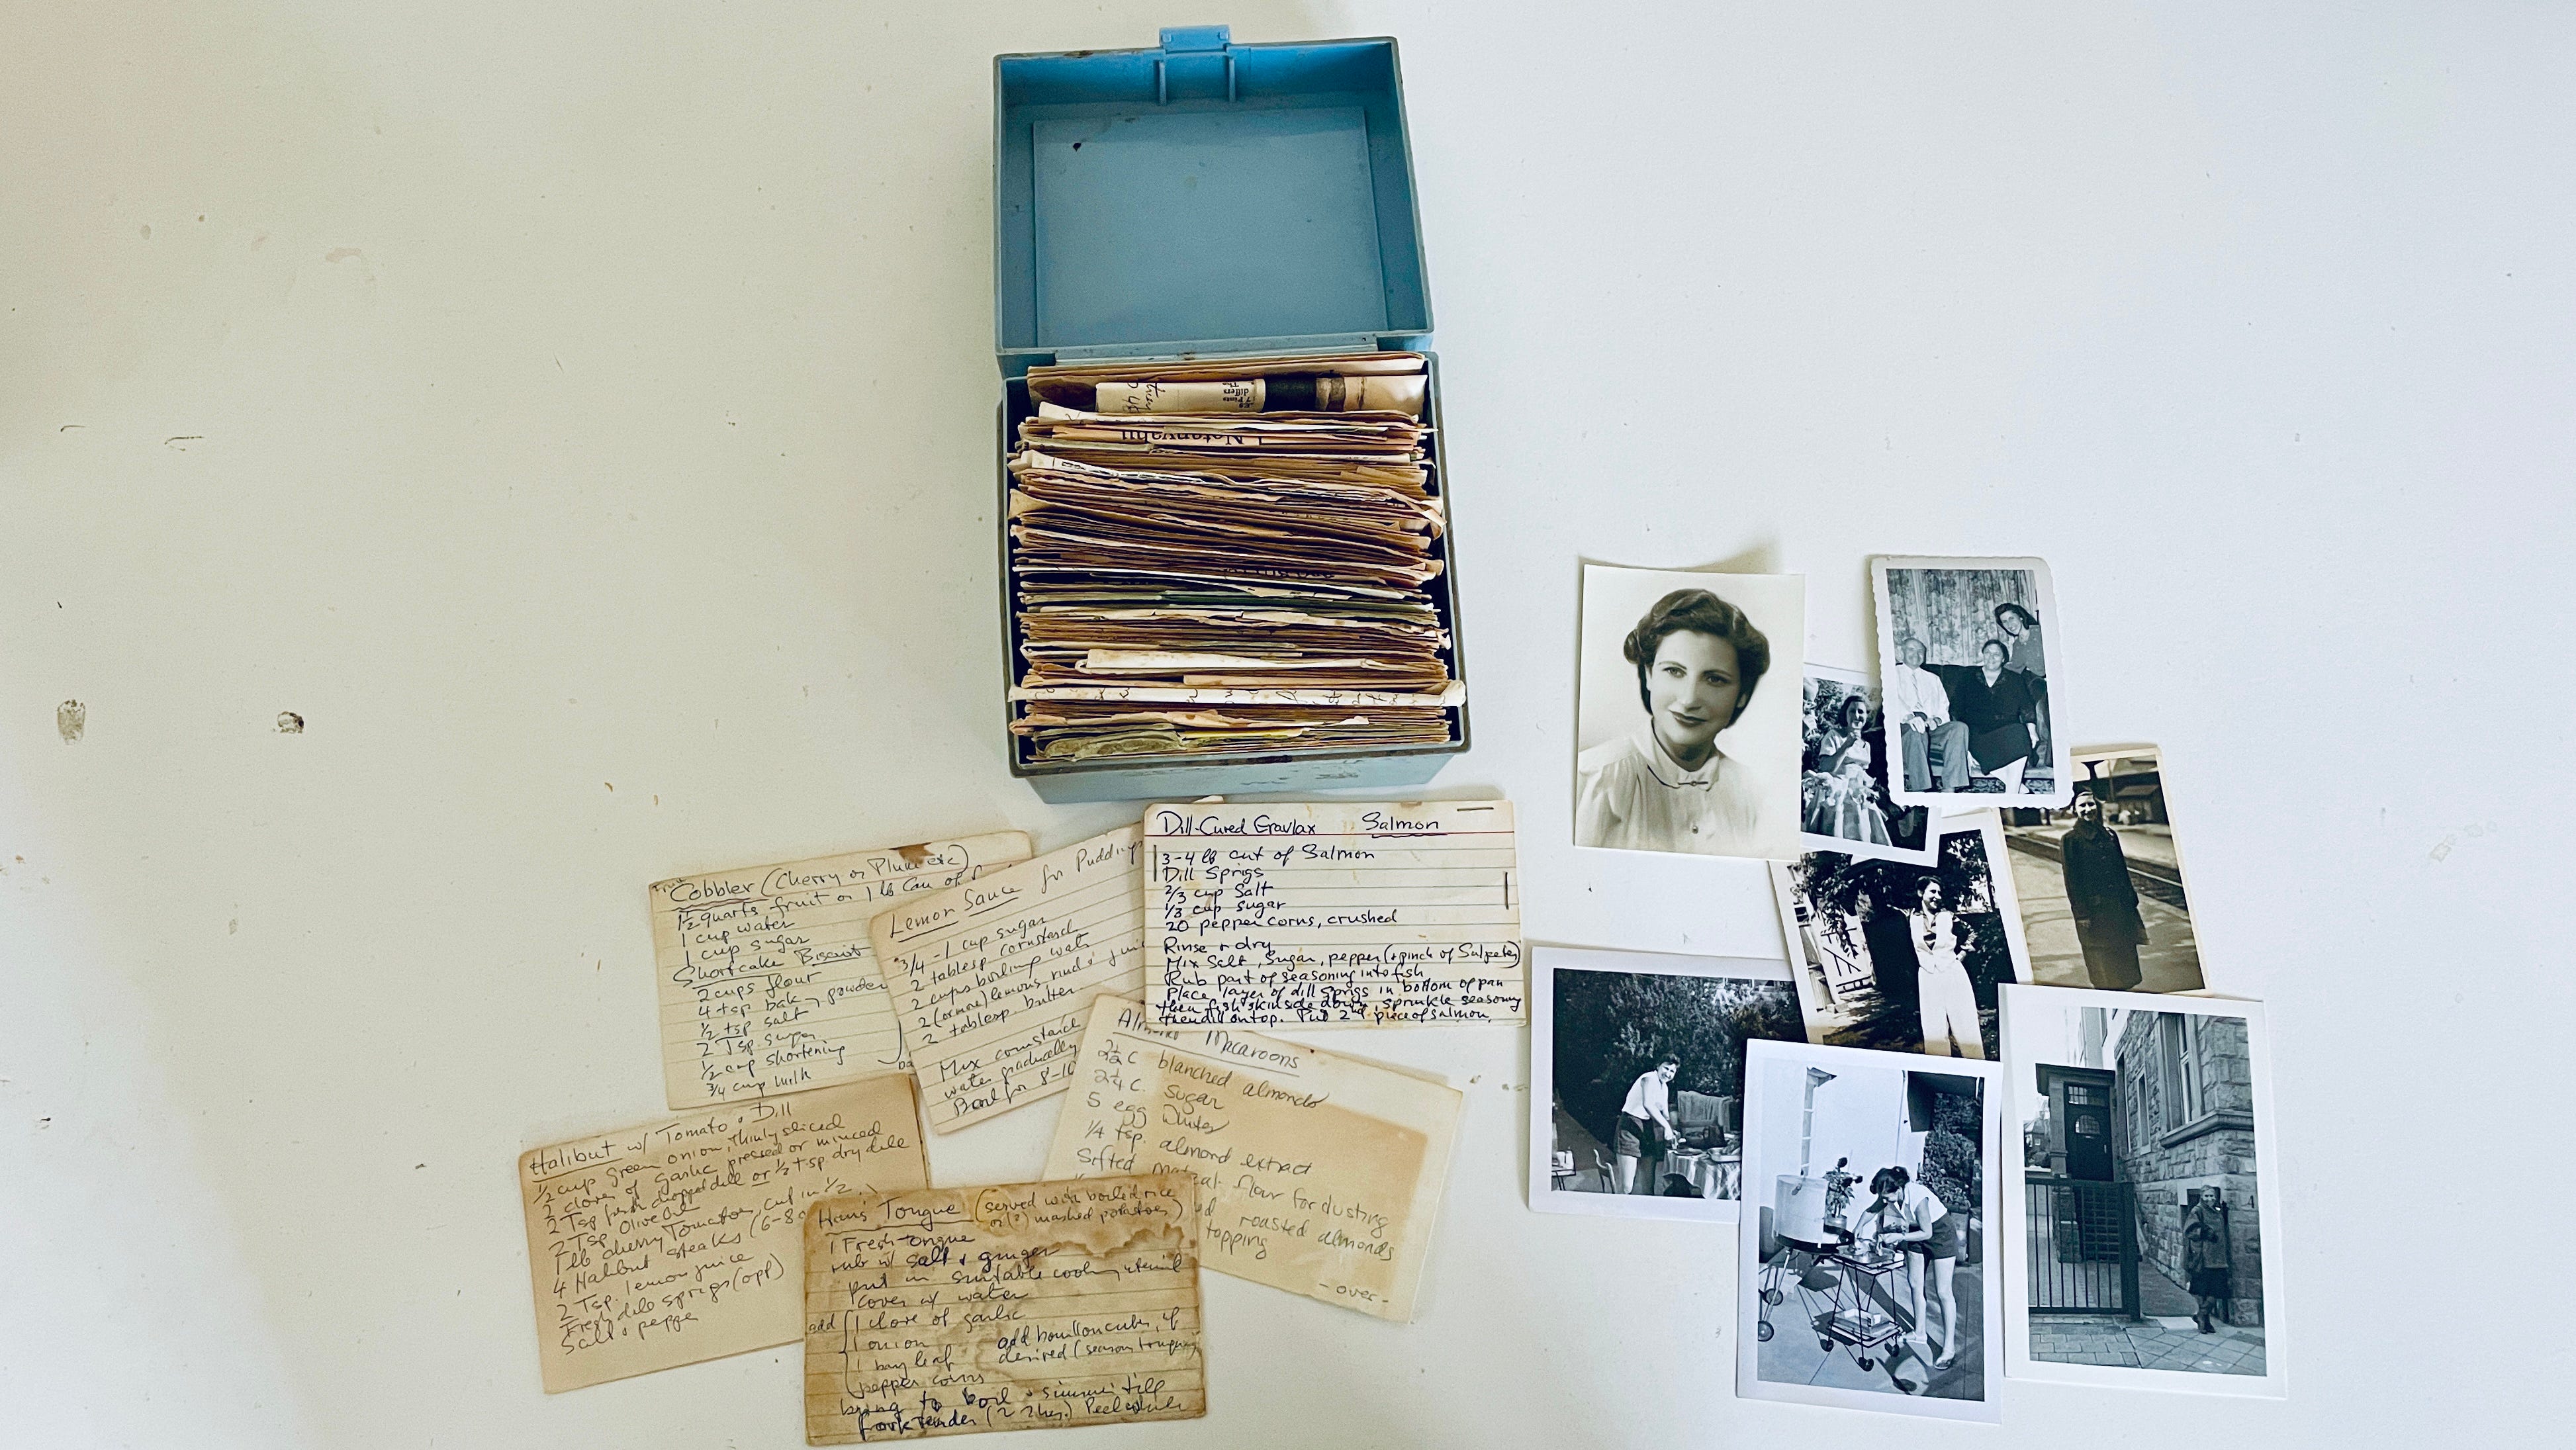 Netanyahu
Fruit
Cobbler (Cherry or Plum etc)
1½ quarts fruit or 1 lb can of
1 cup water
1 cup sugar
Shortcake Biscuit
2 cups flour
4 tsp bak powder
½ tsp salt
2 Tsp. sugar
½ cup shortening
¾ cup milk
Lemon Sauce for Pudding
3/4 - 1 cup sugar
2 tablesp cornstarch
2 cups boiling water
2 (or more) lemons, rind + juice
2 tablesp. butter
Mix cornstarch
water gradually
Boil for 8-10
Dill-Cured Gravlax Salmon
3-4 lb cut of Salmon
Dill Sprigs
2/3 cup Salt
1/3 cup Sugar
20 pepper corns, crushed
Rinse + dry
Mix Salt, Sugar, pepper (+ pinch of Salpeter)
Rub part of seasoning into fish
Place layer of dill sprigs in bottom of pan
then fish skinside down, sprinkle seasoning
then dill on top. Put 2nd piece of salmon,
Almond Macaroons
2½ C blanched almonds
2¼ C. sugar
5 egg whites
¼ tsp. almond extract
Sifted flour for dusting
roasted almonds
topping
- over -
Halibut w/ Tomato & Dill
½ cup green onion, thinly sliced
2 cloves of garlic pressed or minced
2 Tsp fresh chopped dill or ½ tsp. dry dill
2 Tsp. Olive Oil
1 lb cherry Tomatoes, cut in ½.
4 Halibut steaks (6-8
2 Tsp. lemon juice
Fresh dill sprigs (opt)
Salt & pepper
Hani's Tongue (served with boiled rice
or (?) mashed potatoes)
1 Fresh tongue
rub w/ salt & ginger
put in suitable cooking utensil
cover w/ water
add 1 clove of garlic
1 onion add bouillon cube, if
1 bay leaf desired (season tongue)
pepper corns
bring to boil & simmer till
fork tender (2 2hrs.) Peel while